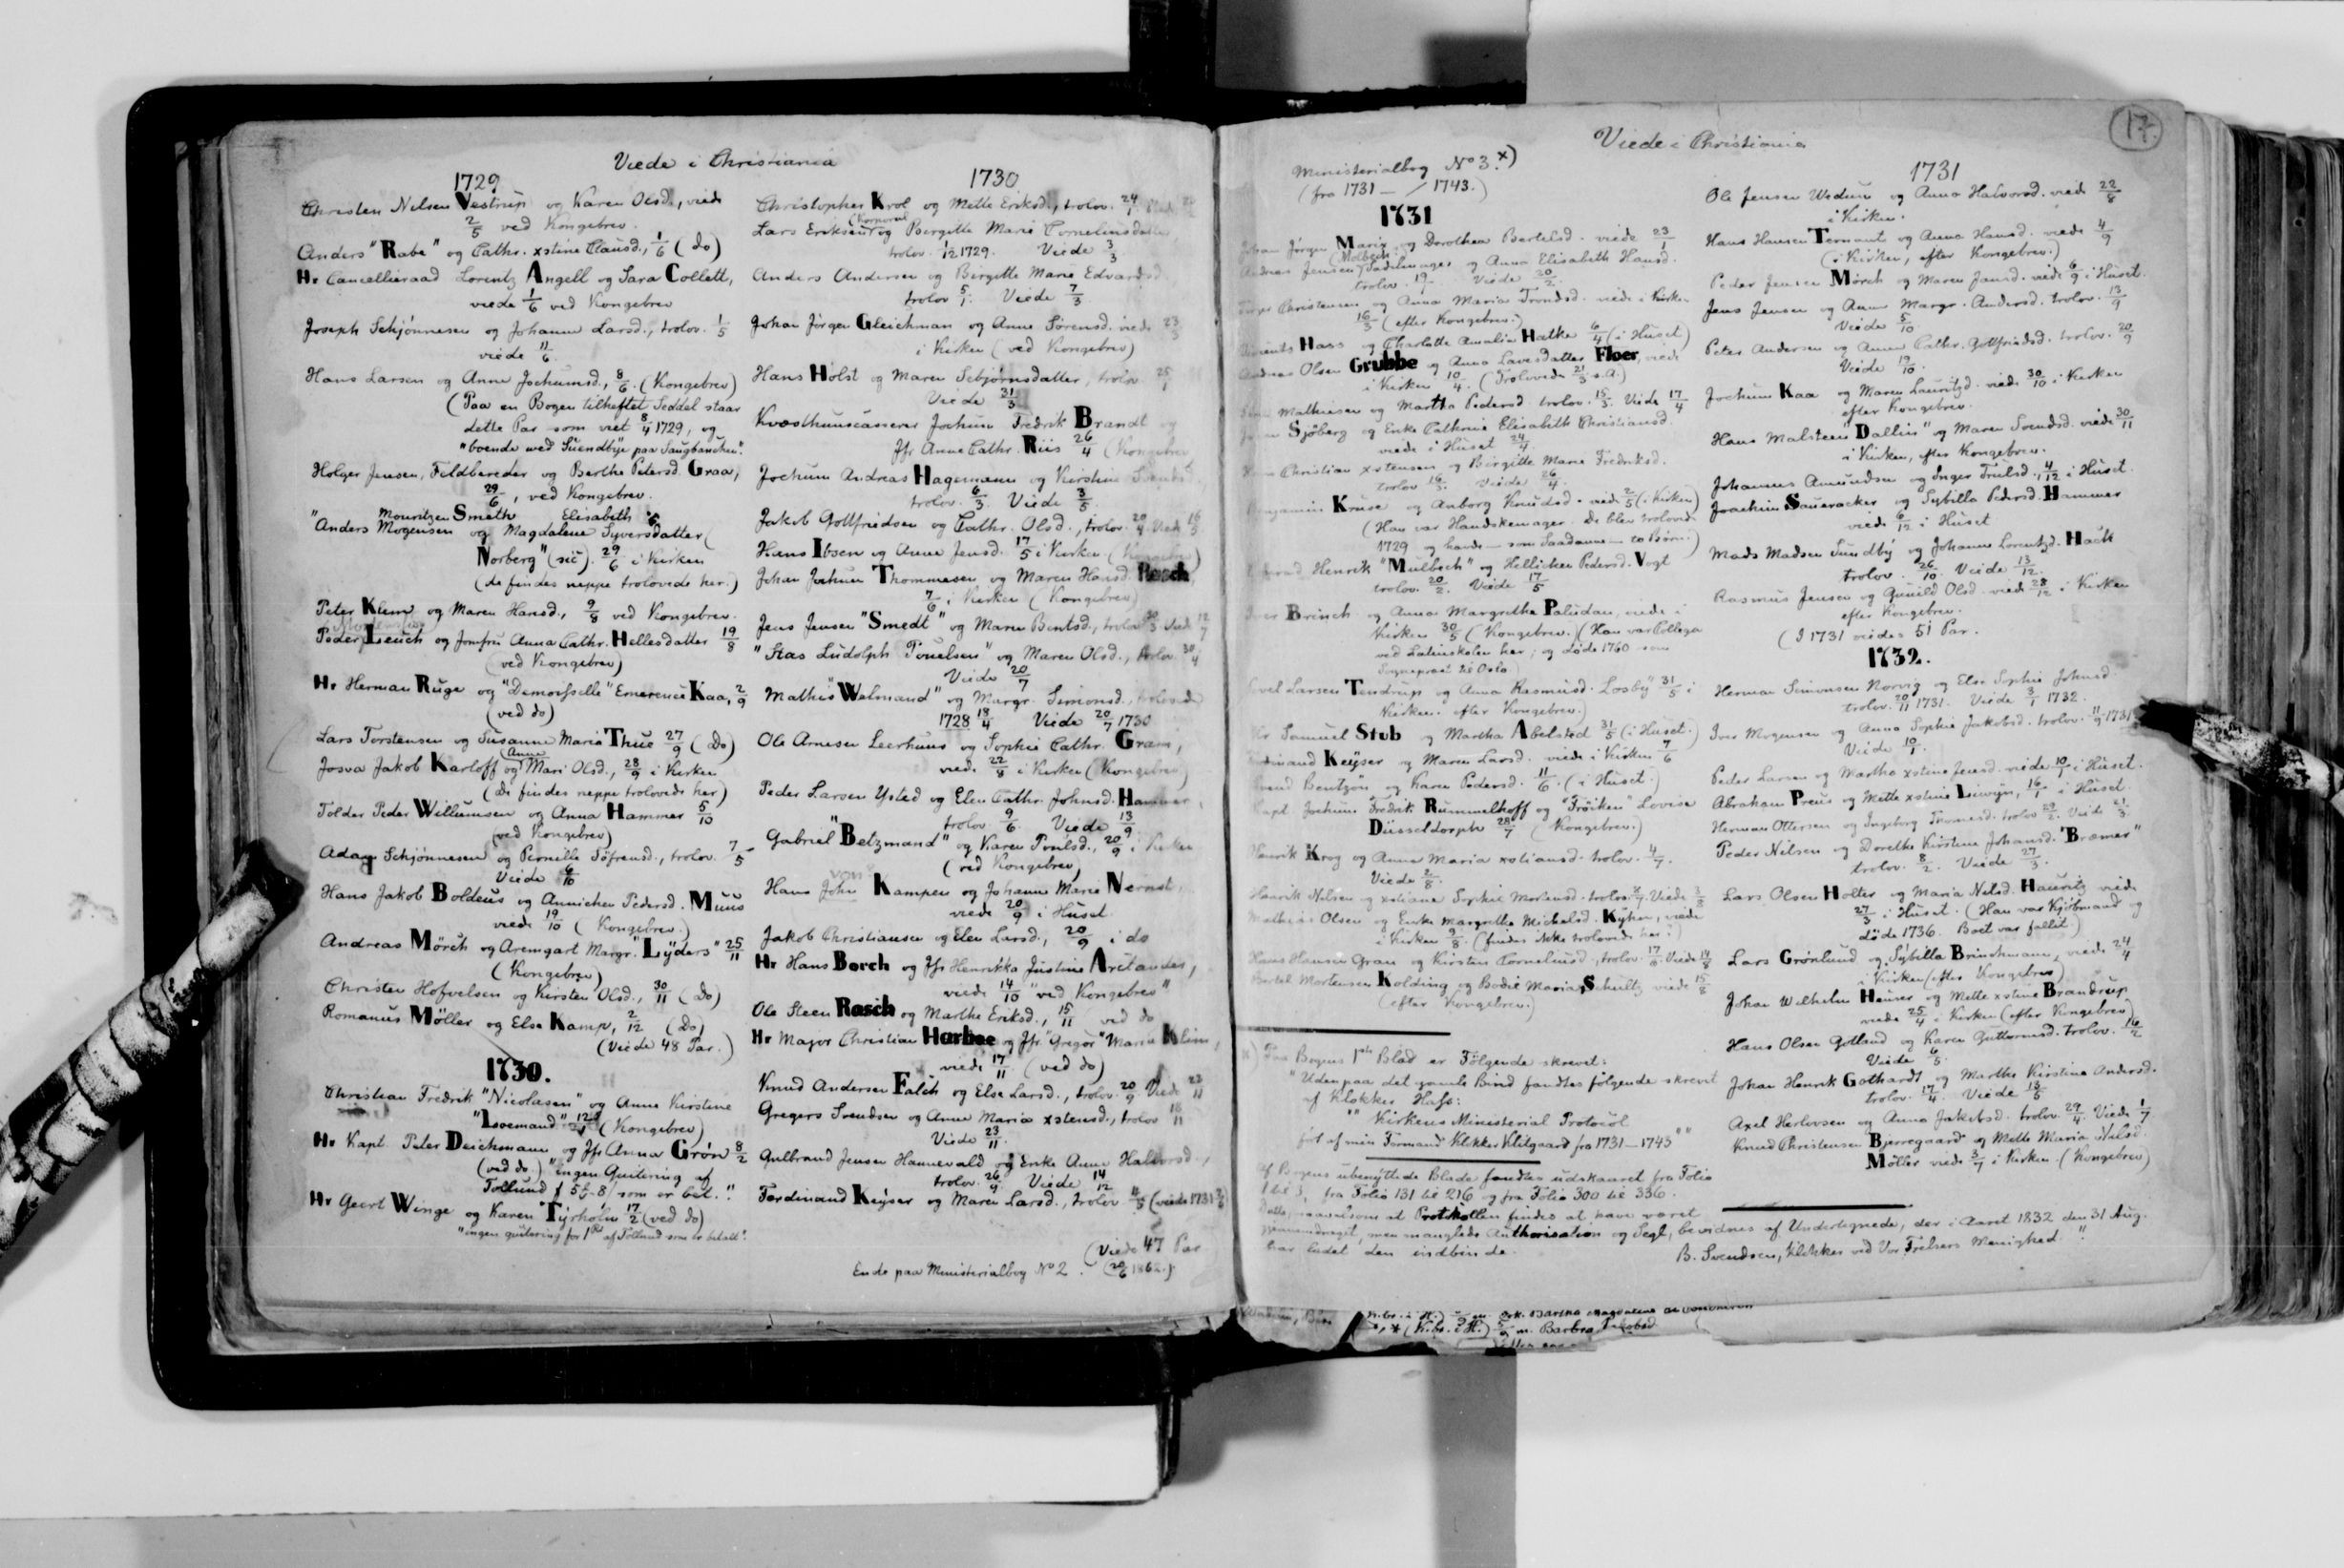 Viede i Christiania
1729
Christen Nilsen Vestrup og Karen Olsd., viede
2/5 ved Kongebrev.
Anders "Rabe" og Cathr. xstine Clausd., 1/6 (do)
Hr Cancellieraad Lorentz Angell og Sara Collett,
viede 1/6 ved Kongebrev
Joseph Schjönnesen og Johanne Larsd., trolov. 1/5
viede 11/6.
Hans Larsen og Anne Jochumsd., 8/6. (Kongebrev)
(Paa en Bogen tilheftet Seddel staar
dette Par som viet 8/4 1729, og
"boende ved Suendbye paa Saugbanchen".
Holger Jensen, Feldbereder og Berthe Pedersd. Graa,
29/6, ved Kongebrev.
Mouritzen Smeth Elisabeth
"Anders Mogensen og Magdalene Syversdatter
Norberg" (sic). 29/6 i Kirken
(de findes neppe trolovede her.)
Peter Klem og Maren Hansd., 9/8 ved Kongebrev.
Peder Leuch og Jomfru Anna Cathr. Hellesdatter 19/8
(ved Kongebrev)
Hr Herman Ruge og "Demoisselle" Emerence Kaa, 2/9
(ved do)
Lars Torstensen og Susanne Maria Thue 27/9 (do)
Anne
Josva Jakob Karloff og Mari Olsd., 28/9 i Kirken
(De findes neppe trolovede her)
Tolder Peder Willumsen og Anna Hammer 5/10
(ved Kongebrev)
Adam Schjönnesen og Pernille Söfrensd., trolov. 7/5
Viede 6/10
Hans Jakob Boldeus og Annichen Pedersd. Muus
viede 19/10 (Kongebrev.)
Andreas Mörch og Armgart Margr. "Lÿders" 25/11
(Kongebrev)
Christen Hofvelsen og Kirsten Olsd., 30/11 (do)
Romanus Möller og Else Kamp, 2/12 (do)
(Viede 48 Par.)
1730.
Christian Fredrik "Nicolaisen" og Anne Kirstine
"Lsoemand" (Kongebrev)
Hr Kapt. Peter Deichmann og Jfr Anna Grön 8/2
(ved do.) "ingen Quitering af
Tollund som er bet."
Hr Geert Winge og Karen Tÿrholm 17/2 (ved do)
"ingen quitering for af Tollund som er betalt".
1730
Christopher Krol og Mette Eriksd., trolov. 24/1
(Korporal
Lars Eriksen og Birgitte Marie Cornelinsdatter
trolov. 1/12 1729. Viede 3/3
Anders Andersen og Birgitte Marie Edvardsd
trolov 5/1. Viede 7/3.
Johan Jörgen Gleichman og Anne Sörensd. viede 23/3
i Kirken (ved Kongebrev)
Hans Holst og Maren Sebjørnsdatter, trolov 25/1
Viede 31/3
Kvæsthuuscasserer Jochum Fredrik Brandt og
Jfr Anne Cathr. Riis 26/4 (Kongebrev
Jochum Andreas Hagemann og Kirstine
trolov. 6/3 Viede 3/5
Jakob Gottfriedsen og Cathr. Olsd., trolov.
Hans Ibsen og Anne Jensd. 17/5 i Kirken (Kongebrev)
Johan Jochum Thommesen og Maren Hansd. Rasch,
7/6 i Kirken (Kongebrev)
Jens Jensen "Smedt" og Maren Bentsd., trolov 30/3 Viede 12/7
"Stas Ludolph Pouelsen" og Maren Olsd., trolov. 30/4
Viede 20/7
Mathis "Welmand" og Margr. Simonsd., trolovede
1728 18/4 Viede 20/7 1730
Ole Arnesen Leerhuus og Sophie Cathr. Gram,
viede 22/8 i Kirken (Kongebrev)
Peder Larsen Ysted og Elen Cathr. Johnsd. Hammer,
trolov. 9/6. Viede 13/9
Gabriel "Betzmand" og Karen Poulsd., 20/9 i Kirken
(ved Kongebrev)
von
Hans John Kampen og Johanne Marie Nernst,
viede 20/9 i Huset
Jakob Christiansen og Elen Larsd., 20/9 i do
Hr Hans Borch og Jfr Henrikka Justine Arctander,
viede 14/10 "ved Kongebrev"
Ole Steen Rasch og Marthe Eriksd., 15/11 ved do
Hr Major Christian Harboe og Jfr. "Gregor" Marie Klein,
viede 17/11 (ved do)
Knud Andersen Falch og Else Larsd., trolov. 20/9 Viede 23/11
Gregers Svendsen og Anne Maria xstensd., trolov 18/11
Viede 23/11.
Gulbrand Jensen Hannevald og Enke Anne Halvorsd.,
trolov. 26/9 Viede 14/12
Ferdinand Keÿser og Maren Larsd., trolov (viede 1731
(Viede 47 Par
Ende paa Ministerialbog No 2. (20/6 1862.)
17.
Viede i Christiania
Ministerialbog No 3. x)
(fra 1731 — / 1743.)
1731
Johan Jörgen Marix og Dorothea Bertelsd. viede 23/1
(Molbech)
Andreas Jensen Sadelmager og Anna Elisabeth Hansd.
trolov. Viede 20/2.
Christensen og Anna Maria Trondsd. viede i Kirken
16/3 (efter Kongebrev.)
Hass og Charlotte Amalia Hatke 6/4 (i Huset)
Andreas Olsen Grubbe og Anna Lavesdatter Floer, viede
i Kirken 10/4. (Trolovede 21/3 s.A.)
Mathiesen og Martha Pedersd. trolov. 15/3. Viede 17/4
Sjöberg og Enke Cathrine Elisabeth Christiansd.
viede i Huset 24/4
Christian xstensen og Birgitte Marie Fredriksd.
trolov 16/3. Viede 26/4.
Benjamin Kruse og Anborg Knudsd. viede 2/5 (i Kirken)
(Han var Handskemager. De blev trolovede
1729 og havde — som Saadanne — to Børn.)
Henrik "Mulbech" og Hellichen Pedersd. Vogt
trolov. 20/2. Viede 17/5
Iver Brinch og Anna Margrethe Paludan, viede i
Kirken 30/5 (Kongebrev.) (Han var Collega
ved Latinskolen her; og døde 1760 som
Sognepræst til Oslo)
Larsen Tendrup og Anna Rasmusd. "Losby" 31/5 i
Kirken. efter Kongebrev.)
Hr Samuel Stub og Martha Abelsted 31/5 (i Huset.)
Ferdinand Keÿser og Maren Larsd. viede i Kirken 7/6
Svend Bentzön og Karen Pedersd. 11/6. (i Huset.)
Capt. Jochum Fredrik Rummelhoff og "Fröiken" Lovise
Düsseldorph 28/7 (Kongebrev.)
Henrik Krog og Anna Maria xstiansd. trolov. 4/7.
Viede 2/8.
Henrik Nilsen og xstiane Sophie Mortensd. trolov. Viede
Mathias Olsen og Enke Margrethe Michelsd. Kyhn, viede
i Kirken 9/8. (findes ikke trolovede her.)
Hans Hansen Gran og Kirsten Corneliusd., trolov. 17/6 Viede 14/8
Bertel Mortensen Kolding og Bodil Maria Schultz viede 15/8
(efter Kongebrev.)
x) Paa Bogens 1ste Blad er Følgende skrevet:
"Udenpaa det gamle Bind fandtes følgende skrevet
af Klokker Hass:
"" Kirkens Ministerial Protocol
ført af min Formand Klokker Klitgaard fra 1731—1743""
Af Bogens ubenyttede Blade fandtes udskaaret fra Folio
1 til 3, fra Folio 131 til 216 og fra Folio 300 til 336.
Dette, saavelsom at Protokollen findes at have været
igjennemdraget, men manglede Authorisation og Segl, bevidnes af Undertegnede, der i Aaret 1832 den 31 Aug.
har ladet den indbinde.
B. Svendsen, Klokker ved Vor Frelsers Menighed."
1731
Ole Jensen Wedum og Anna Halvorsd. viede 22/8
i Kirken.
Hans Hansen Ternant og Anna Hansd. viede 4/9
(i Kirken, efter Kongebrev.)
Peder Jensen Mörch og Maren Jansd. viede 6/9 i Huset.
Jens Jensen og Anne Margr. Andersd. trolov. 13/9
Viede 5/10
Peter Andersen og Anne Cathr. Gottfriedsd. trolov. 20/9
Viede 19/10.
Jochum Kaa og Maren Lauritzd. viede 30/10 i Kirken
efter Kongebrev.
Hans Malsteen "Dallin" og Maren Svendsd. viede 30/11
i Kirken, efter Kongebrev.
Johannes Amundsen og Inger Truelsd., 4/12 i Huset.
Joachim Saueracker og Sybilla Pedersd. Hammer
viede 6/12 i Huset
Mads Madsen Sundby og Johanne Lorentzd. Hach
trolov. 26/10 Viede 13/12.
Rasmus Jensen og Gunild Olsd. viede 28/12 i Kirken
efter Kongebrev.
(I 1731 viedes 51 Par.
1732.
Herman Simonsen Norvig og Else Sophie Johnsd.
trolov. 20/11 1731. Viede 3/1 1732.
Iver Mogensen og Anna Sophie Jakobsd. trolov. 11/9 1731
Viede 10/1.
Peder Larsen og Martha xstine Jensd. viede 10/1 i Huset.
Abraham Preus og Mette xstine Liewyn, 16/1 i Huset.
Herman Ottersen og Ingeborg Thomesd. trolov. Viede 21/3.
Peder Nilsen og Dorethe Kirstine Johansd. "Bræmer"
trolov. 8/2. Viede 27/3.
Lars Olsen Holter og Maria Nilsd. Hauritz viede
27/3 i Huset. (Han var Kjöbmand og
døde 1736. Boet var fallit.)
Lars Grønlund og Sybilla Brinchmann, viede 24/4
i Kirken (efter Kongebrev)
Johan Wilhelm Heuser og Mette xstine Brandrup
viede 25/4 i Kirken (efter Kongebrev)
Hans Olsen Gotland og Karen Guttormsd. trolov. 16/2
Viede 6/5.
Johan Henrik Gothardt og Marthe Kirstine Andersd.
trolov. 17/4. Viede 13/5
Axel Herlovsen og Anna Jakobsd. trolov. 29/4. Viede 1/7
Knud Christensen Bjerregaard og Mette Maria Nilsd.
Möller viede 3/7 i Kirken. (Kongebrev)